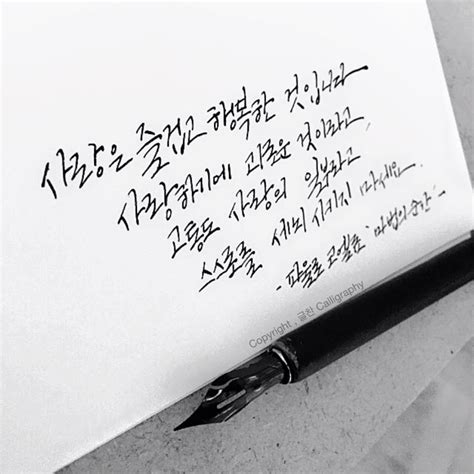 사랑은 즐겁고 행복한 것입니다
사랑하기에 괴로운 것이라고,
고통도 사랑의 일부라고
스스로를 세뇌 시키지 마세요.
- 파울로 코엘료 '마법의 순간' -
Copyright , 글찬 Calligraphy